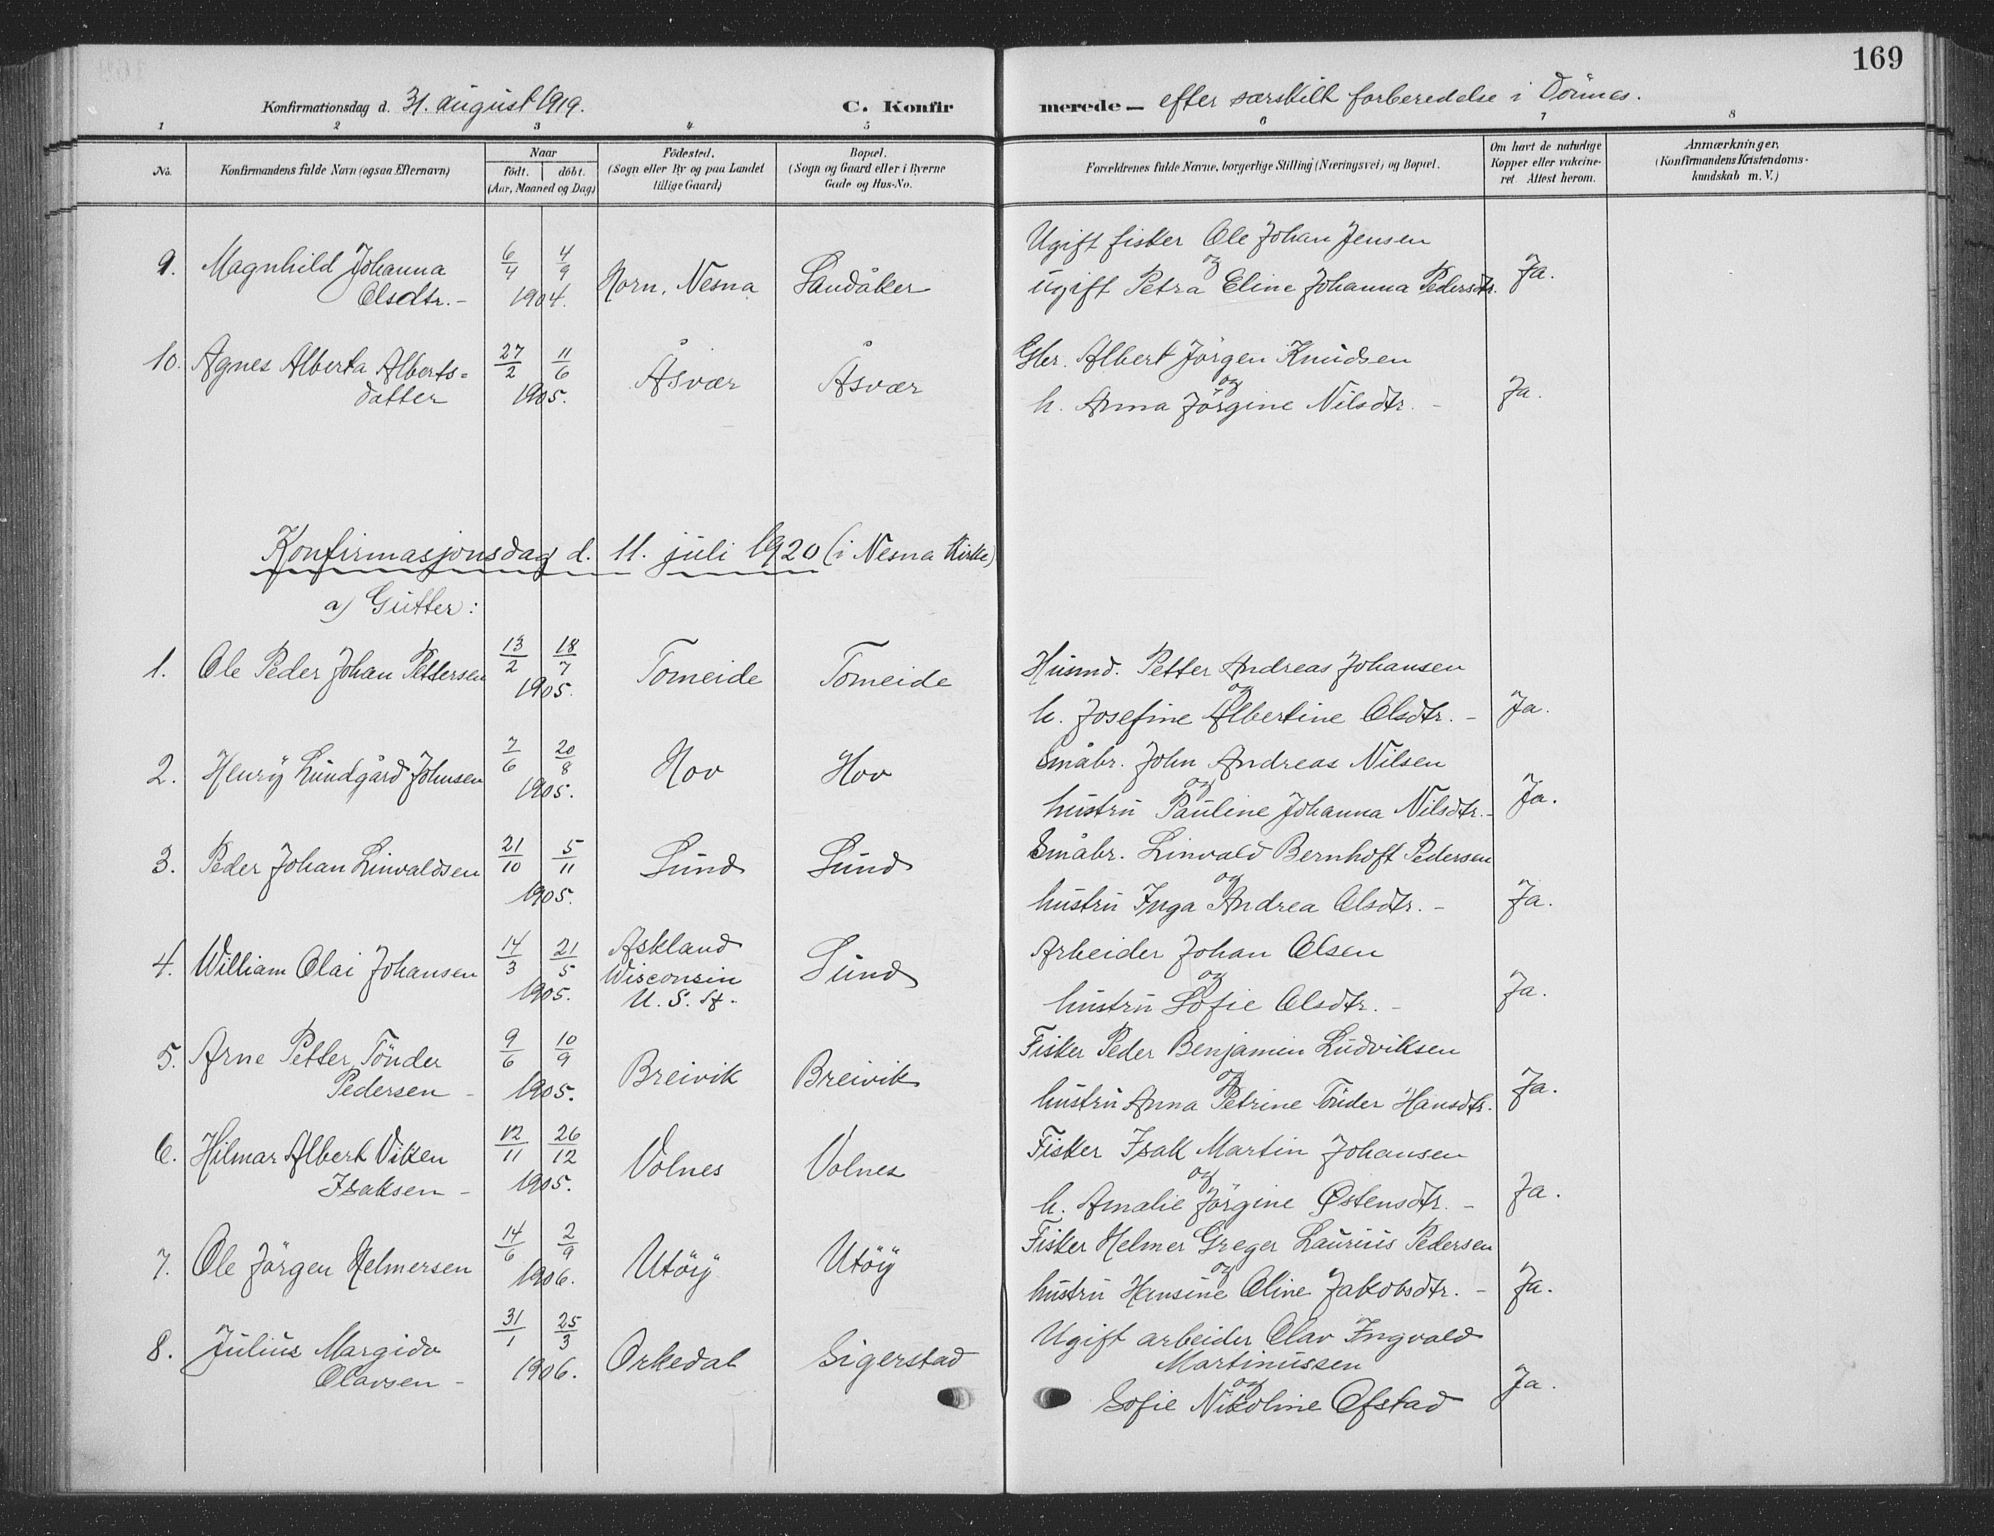 169
Konfirmationsdag d. 31. august 1919. C. Konfirmerede – efter særskilt forberedelse i Dönnes.
1 2 3 4 5 6 7 8
No. Konfirmandens fulde Navn (ogsaa Efternavn) Naar födt. döbt. (Aar, Maaned og Dag) Födested. (Sogn eller By og paa Landet tillige Gaard) Bopæl. (Sogn og Gaard eller i Byerne Gade og Hus-No. Forældrenes fulde Navne, borgerlige Stilling (Næringsvei) og Bopæl. Om havt de naturlige Kopper eller vakcineret Attest herom. Anmærkninger. (Konfirmandens Kristendomskundskab m. V.)
9. Magnhild Johanna Olsdtr. – 6/4 4/9 1904. Horn, Nesna Sandåker Ugift fisker Ole Johan Jensen og ugift Petra Eline Johanna Pedersdtr. Ja.
10. Agnes Alberta Alberts=datter 27/2 11/6 1905. Åsvær Åsvær Gbr. Albert Jörgen Knudsen og h. Anna Jörgine Nilsdtr. – Ja.
Konfirmasjonsdag d. 11. juli 1920 (i Nesna Kirke)
a) Gutter:
1. Ole Peder Johan Pettersen 13/2 18/7 1905. Tomeide Tomeide Husmd. Petter Andreas Johansen og h. Josefine Albertine Olsdtr. – Ja.
2. Henry Lundgård Johnsen 7/6 20/8 1905. Hov Hov Småbr. John Andreas Nilsen og hustru Pauline Johanna Nilsdtr. – Ja.
3. Peder Johan Linvaldsen 21/10 5/11 1905. Sund Sund Småbr. Linvald Bernhoft Pedersen og hustru Inga Andrea Olsdtr. – Ja.
4. William Olai Johansen 14/3 21/5 1905. Askland Wisconsin U. S. A. Sund Arbeider Johan Olsen og hustru Sofie Olsdtr. – Ja.
5. Arne Petter Tönder Pedersen – 9/6 10/9 1905. Breivik Breivik Fisker Peder Benjamin Ludviksen og hustru Anna Petrine Tönder Hansdtr. Ja.
6. Hilmar Albert Viken Isaksen – 12/11 26/12 1905. Volnes Volnes Fisker Isak Martin Johansen og h. Amalie Jörgine Østensdtr. – Ja.
7. Ole Jörgen Helmersen 14/6 2/9 1906. Utöy Utöy Fisker Helmer Greger Laurius Pedersen og hustru Hansine Oline Jakobsdtr. – Ja.
8. Julius Margido Olavsen – 31/1 25/3 1906. Orkedal Sigerstad Ugift arbeider Olav Ingvald Martinussen og Sofie Nikoline Ofstad Ja.